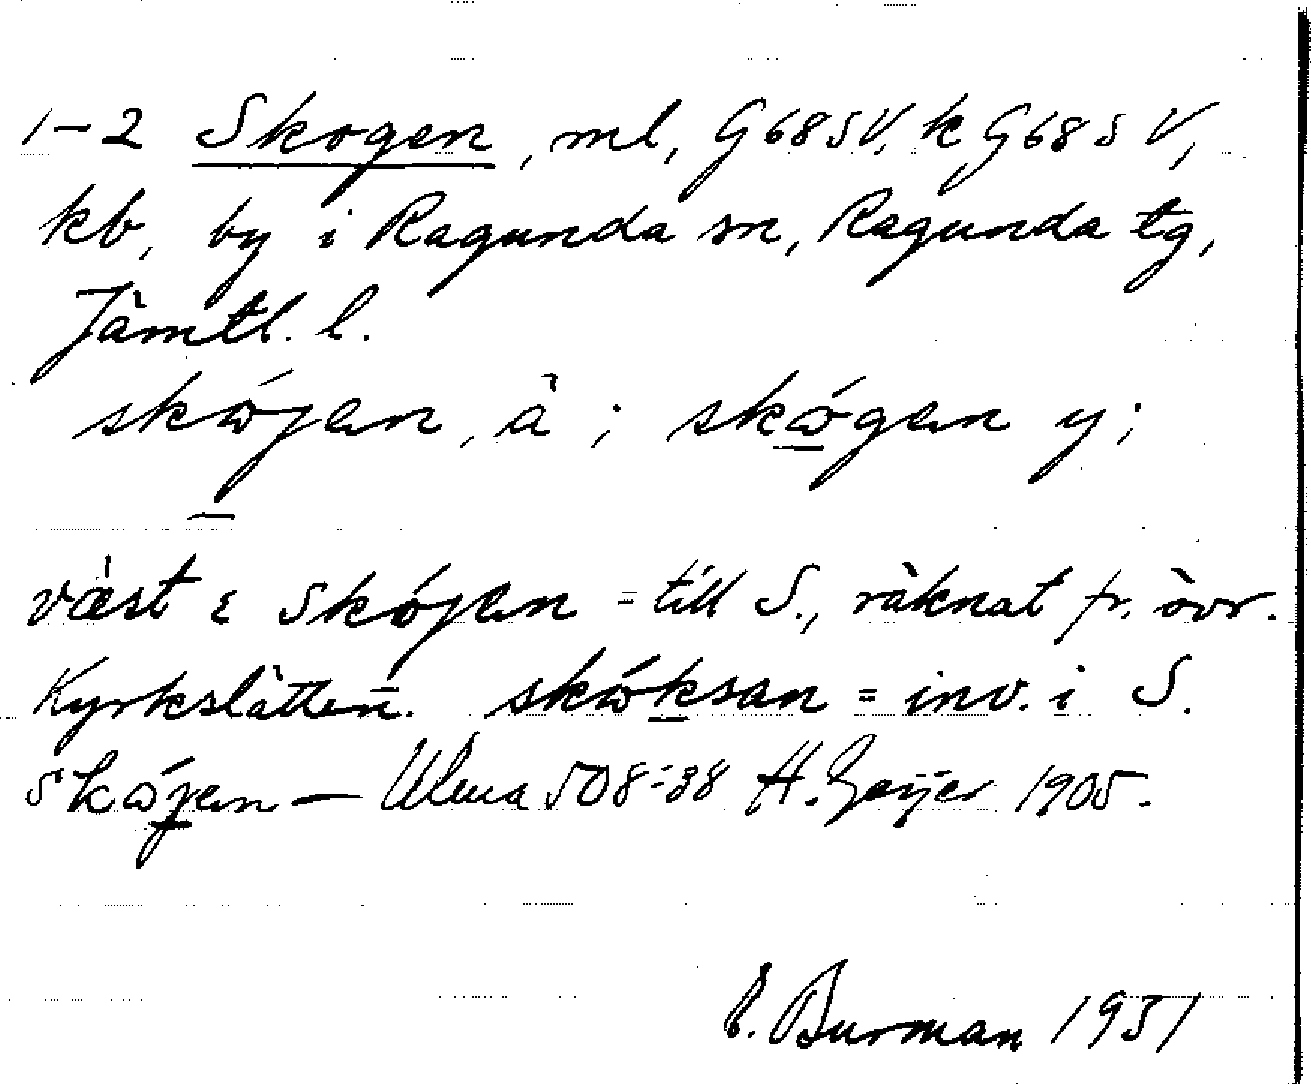 1–2 Skogen, ml, G68SV, k G68SV,
kb, by i Ragunda sn, Ragunda tg,
Jämtl. l.
skǿjen, ä ; skǿgen y ;
väst ɛ skójen = till S., räknat fr. övr.
Kyrkslätten. skóksan = inv. i S.
skójen — Ulma 508:38 H. Geijer 1905.
E. Burman 1951